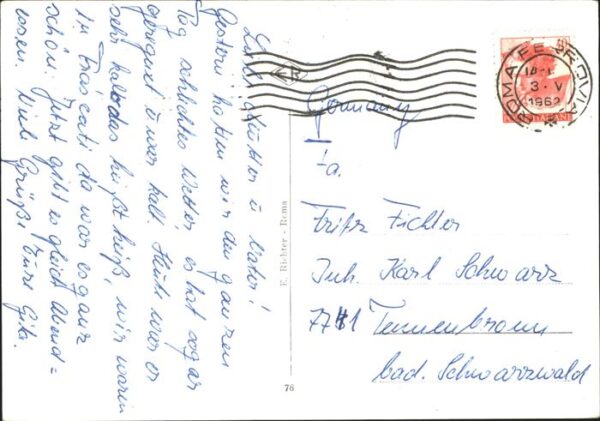 Liebe Mutter u Vater!
Gestern hatten wir den ganzen
Tag schlechtes Wetter, es hat sogar
geregnet u war kalt. Heute war es
sehr halb das heißt heiß, wir waren
in Frascati da war es ganz
schön. Jetzt gibt es gleich Abend=
essen. Viele Grüße Eure
E. Richter - Roma
76
ROMA FERROVIA
3 · V
1962
Germany
Fa.
Fritz Fichter
Inh. Karl Schwarz
7741 Tennenbronn
bad. Schwarzwald